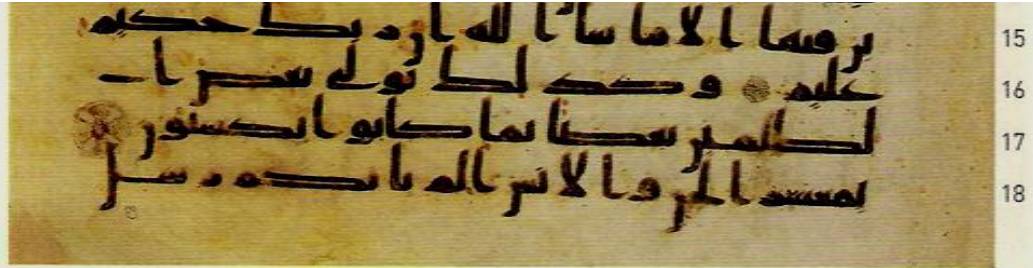 15 ين فيها الا ما شا الله ان ربك حكيم
16 عليم وكذلك نولي بعض ا
17 لظلمين بعضا بما كانوا يكسبون
18 يمعشر الجن والانس الم ياتكم رسل